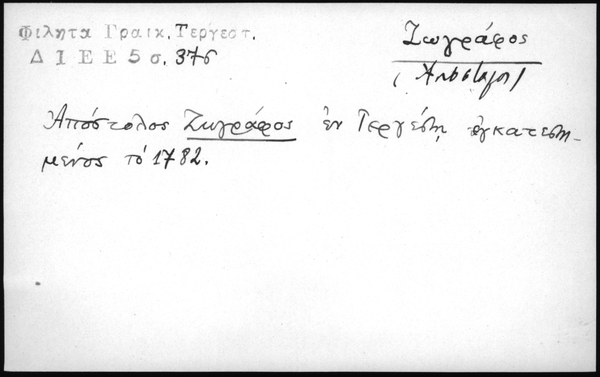 Φιλητα Γραικ. Τεργεστ.
Δ Ι Ε Ε 5 σ. 376
Ζωγράφος
(Απόστολος)
Ἀπόστολος Ζωγράφος ἐν Τεργέστῃ ἐγκατεστη-
μένος τό 1782.